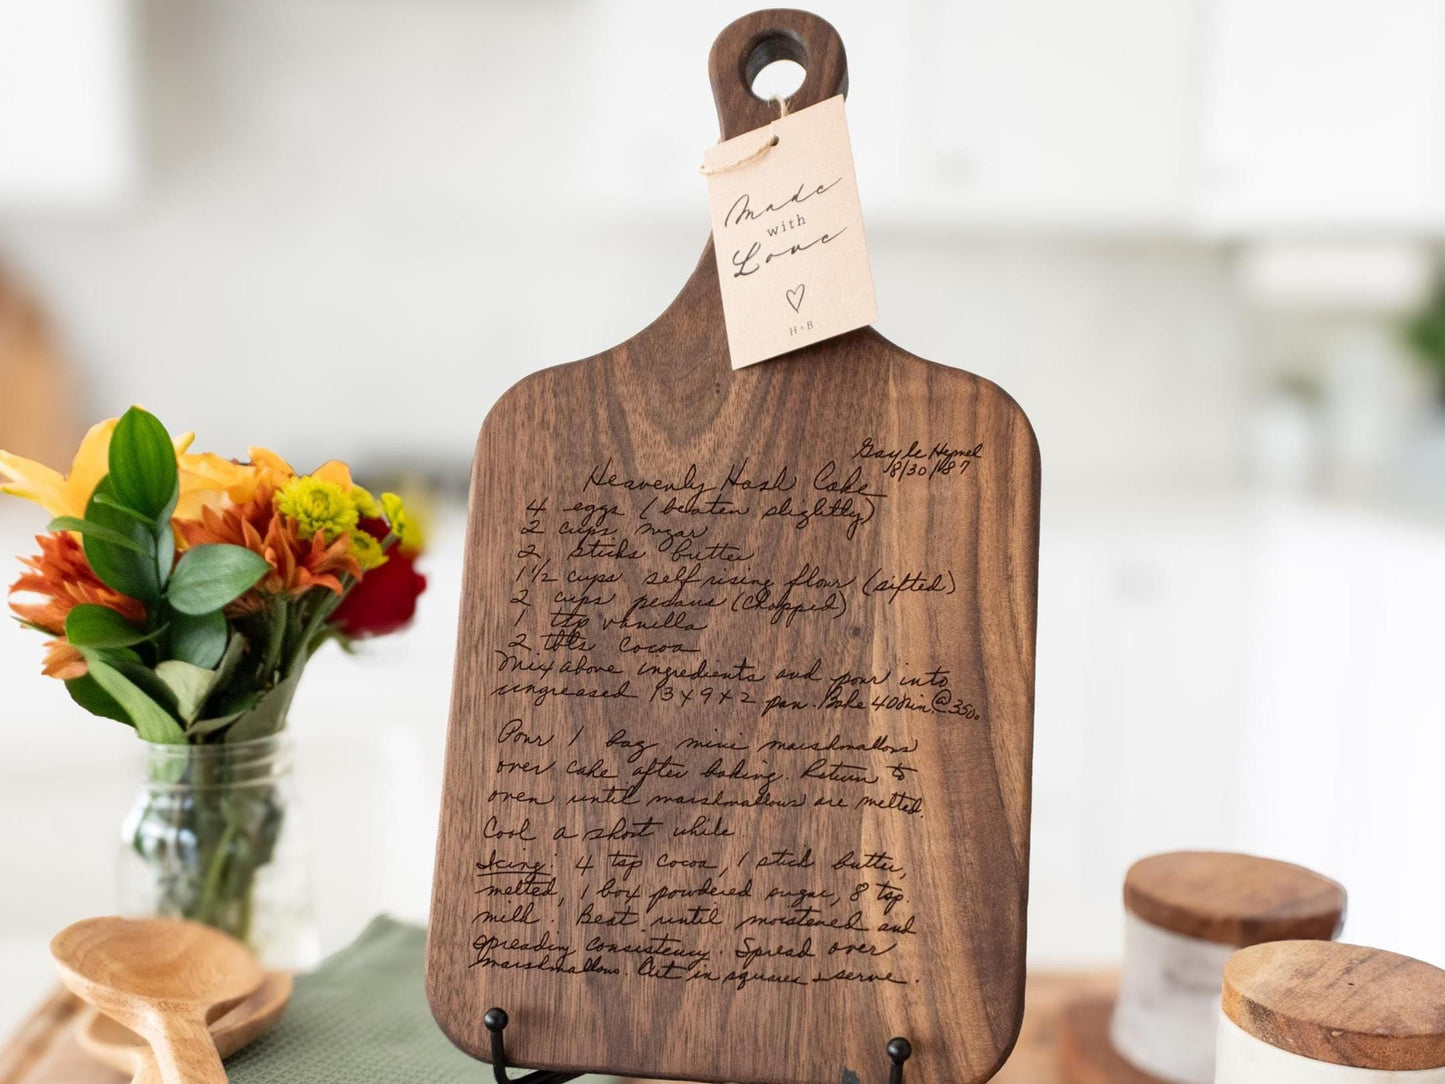 Made
with
Love
H+B
Gayle Hymel
8/30/87
Heavenly Hash Cake
4 eggs (beaten slightly)
2 cups sugar
2 sticks butter
1 1/2 cups self rising flour (sifted)
2 cups pecans (chopped)
1 tsp vanilla
2 tbls cocoa
Mix above ingredients and pour into
ungreased 13x9x2 pan. Bake 40 min. @ 350°
Pour 1 bag mini marshmallows
over cake after baking. Return to
oven until marshmallows are melted.
Cool a short while.
Icing: 4 tsp cocoa, 1 stick butter,
melted, 1 box powdered sugar, 8 tsp.
milk. Beat until moistened and
spreading consistency. Spread over
marshmallows. Cut in squares & serve.